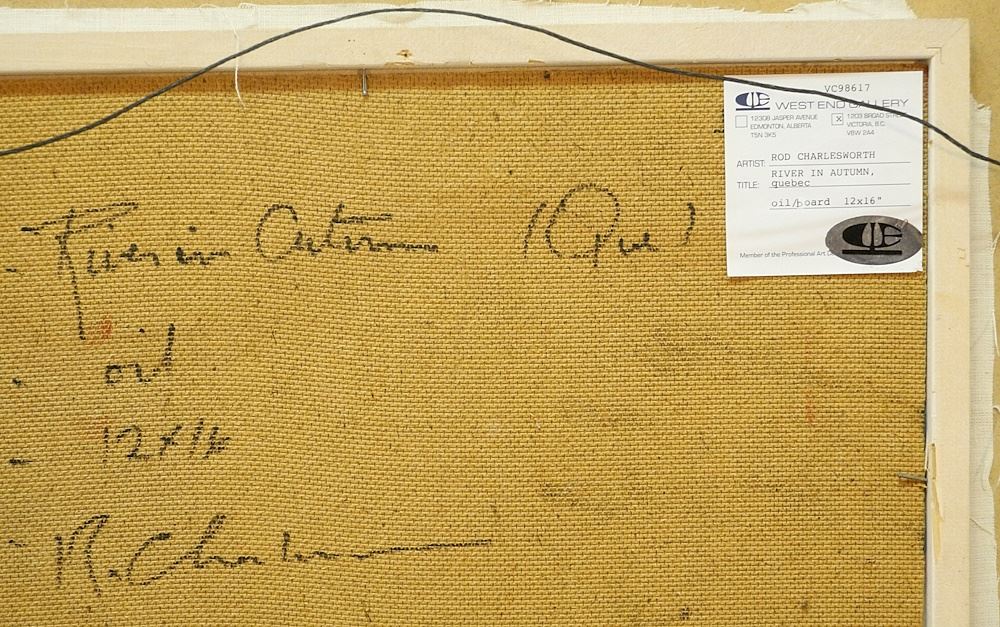 VC98617
WEST END GALLERY
12308 JASPER AVENUE
EDMONTON, ALBERTA
T5N 3K5
X 1203 BROAD
VICTORIA, B.C.
V8W 2A4
ARTIST: ROD CHARLESWORTH
TITLE: RIVER IN AUTUMN,
quebec
oil/board 12x16"
Member of the Professional Art
- River in Autumn (Que)
- oil
- 12x16
- R. Charlesworth